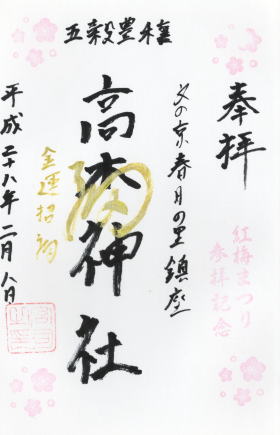 五穀豊穣
奉拝
紅梅まつり
参拝記念
文の京春日の里鎮座
高木神社
金運招福
平成二十八年二月八日